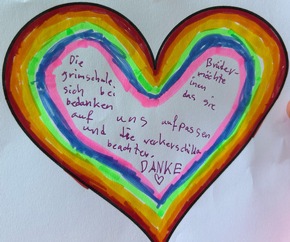 Die Brüder-
grimschule, möchte
sich bei inen
bedanken das sie
auf uns aufpassen
und die verkerschilder
beachten.
DANKE